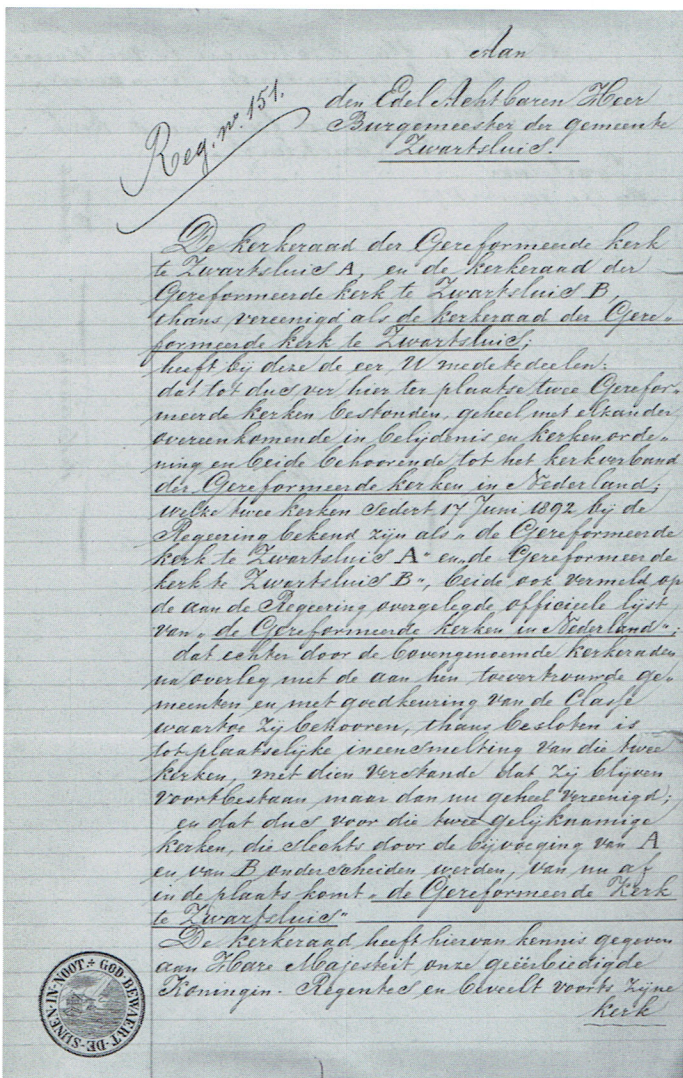 Aan
den Edel Achtbaren Heer
Burgemeester der gemeente
Zwartsluis.
Reg. no. 151.
De kerkeraad der Gereformeerde kerk
te Zwartsluis A, en de kerkeraad der
Gereformeerde kerk te Zwartsluis B,
thans vereenigd als de kerkeraad der Gere„
formeerde kerk te Zwartsluis;
heeft bij deze de eer U mede te deelen:
dat tot dus ver hier ter plaatse twee Gerefor„
meerde kerken bestonden, geheel met elkander
overeenkomende in belijdenis en kerkenorde„
ning en beide behoorende tot het kerkverband
der Gereformeerde kerken in Nederland;
welke twee kerken sedert 17 Juni 1892 bij de
Regeering bekend zijn als „de Gereformeerde
kerk te Zwartsluis A" en „de Gereformeerde
kerk te Zwartsluis B", beide ook vermeld op
de aan de Regeering overgelegde officieele lijst
van „de Gereformeerde kerken in Nederland";
dat echter door de bovengenoemde kerkeraden
na overleg met de aan hen toevertrouwde ge„
meenten en met goedkeuring van de Classe
waartoe zij behooren, thans besloten is
tot plaatselijke ineensmelting van die twee
kerken, met dien verstande dat zij blijven
voortbestaan maar dan nu geheel vereenigd;
en dat dus voor die twee gelijknamige
kerken, die slechts door de bijvoeging van A
en van B onderscheiden werden, van nu af
in de plaats komt „de Gereformeerde Kerk
te Zwartsluis"
De kerkeraad heeft hiervan kennis gegeven
aan Hare Majesteit onze geëerbiedigde
Koningin-Regentes en beveelt voorts zijne
kerk
GOD·BEWAERT·DE·SIJNEN·IN·NOOT